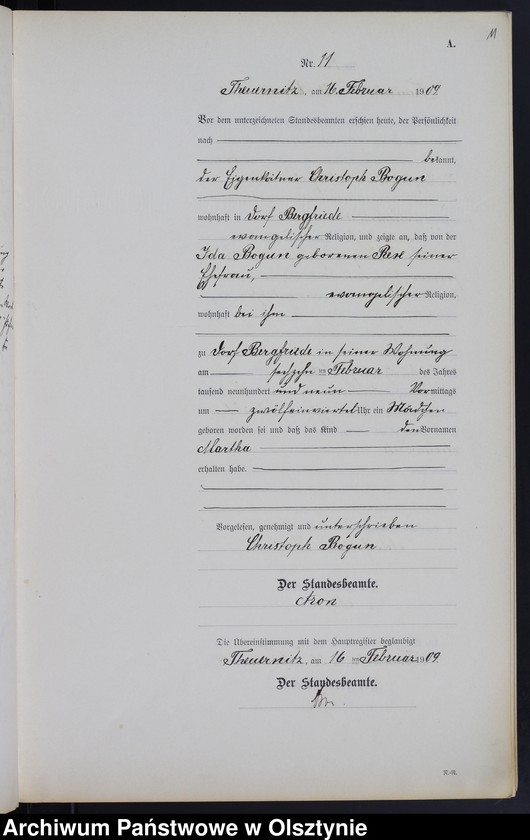 11
A.
Nr. 11
Theuernitz, am 16. Februar 1909.
Vor dem unterzeichneten Standesbeamten erschien heute, der Persönlichkeit
nach
bekannt,
der Eigenkätner Christoph Bogun
wohnhaft in Dorf Bergfriede
evangelischer Religion, und zeigte an, daß von der
Ida Bogun geborenen seiner
Ehefrau,
evangelischer Religion,
wohnhaft bei ihm
zu Dorf Bergfriede in seiner Wohnung
am sechzehn ten Februar des Jahres
tausend neunhundert und neun Vormittags
um zwölfeinviertel Uhr ein Mädchen
geboren worden sei und daß das Kind den Vornamen
Martha
erhalten habe.
Vorgelesen, genehmigt und unterschrieben
Christoph Bogun
Der Standesbeamte.
Die Übereinstimmung mit dem Hauptregister beglaubigt
Theuernitz, am 16 ten Februar 1909.
Der Standesbeamte.
Archiwum Państwowe w Olsztynie